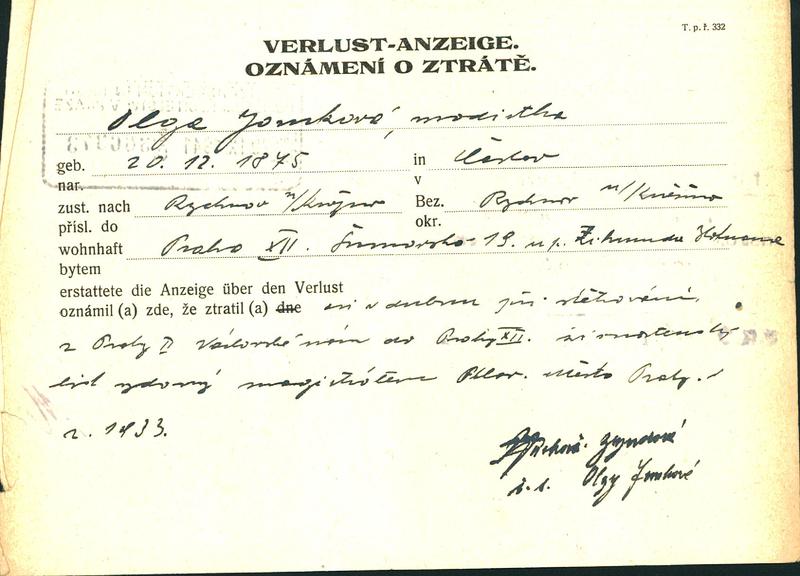 T. p. ř. 332
VERLUST-ANZEIGE.
OZNÁMENÍ O ZTRÁTĚ.
Olga Jomková, modistka
geb. 20. 12. 1875 in
nar. v
zust. nach Rychnov n/Kněžnou Bez. Rychnov n/Kněžnou
přísl. do okr.
wohnhaft Praha XII. 19. u p. Zikmunda
bytem
erstattete die Anzeige über den Verlust
oznámil (a) zde, že ztratil (a) dne asi v dubnu při stěhování
z Prahy II Václavské nám do Prahy XII. živnostenský
list vydaný magistrátem hlav. města Prahy
r. 1933.
Olgy